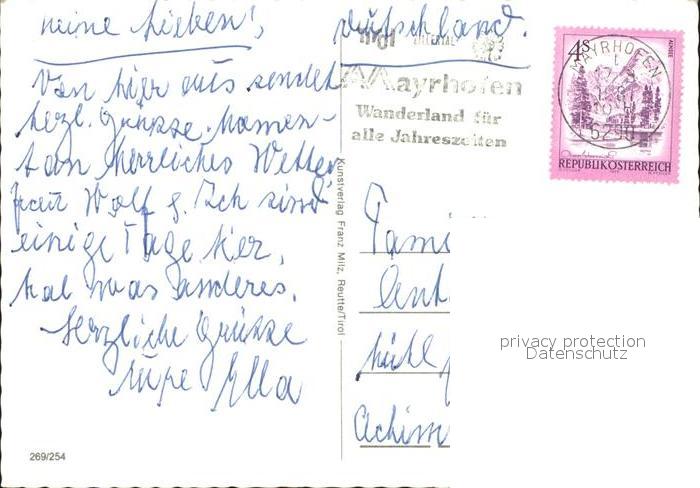 meine Lieben!
Deutschland.
Von hier aus sendet
herzl. Grüsse. Momen-
tan herrliches Wetter
Frau Wolf g. Ich sind
einige Tage hier,
mal was anderes.
Herzliche Grüsse
Eure Ella
269/254
Kunstverlag Franz Milz, Reutte/Tirol
Tirol
Mayrhofen
Wanderland für
alle Jahreszeiten
MAYRHOFEN
6290
4 S
REPUBLIK ÖSTERREICH
Fami
Ant
Mühl
Achim
privacy protection
Datenschutz